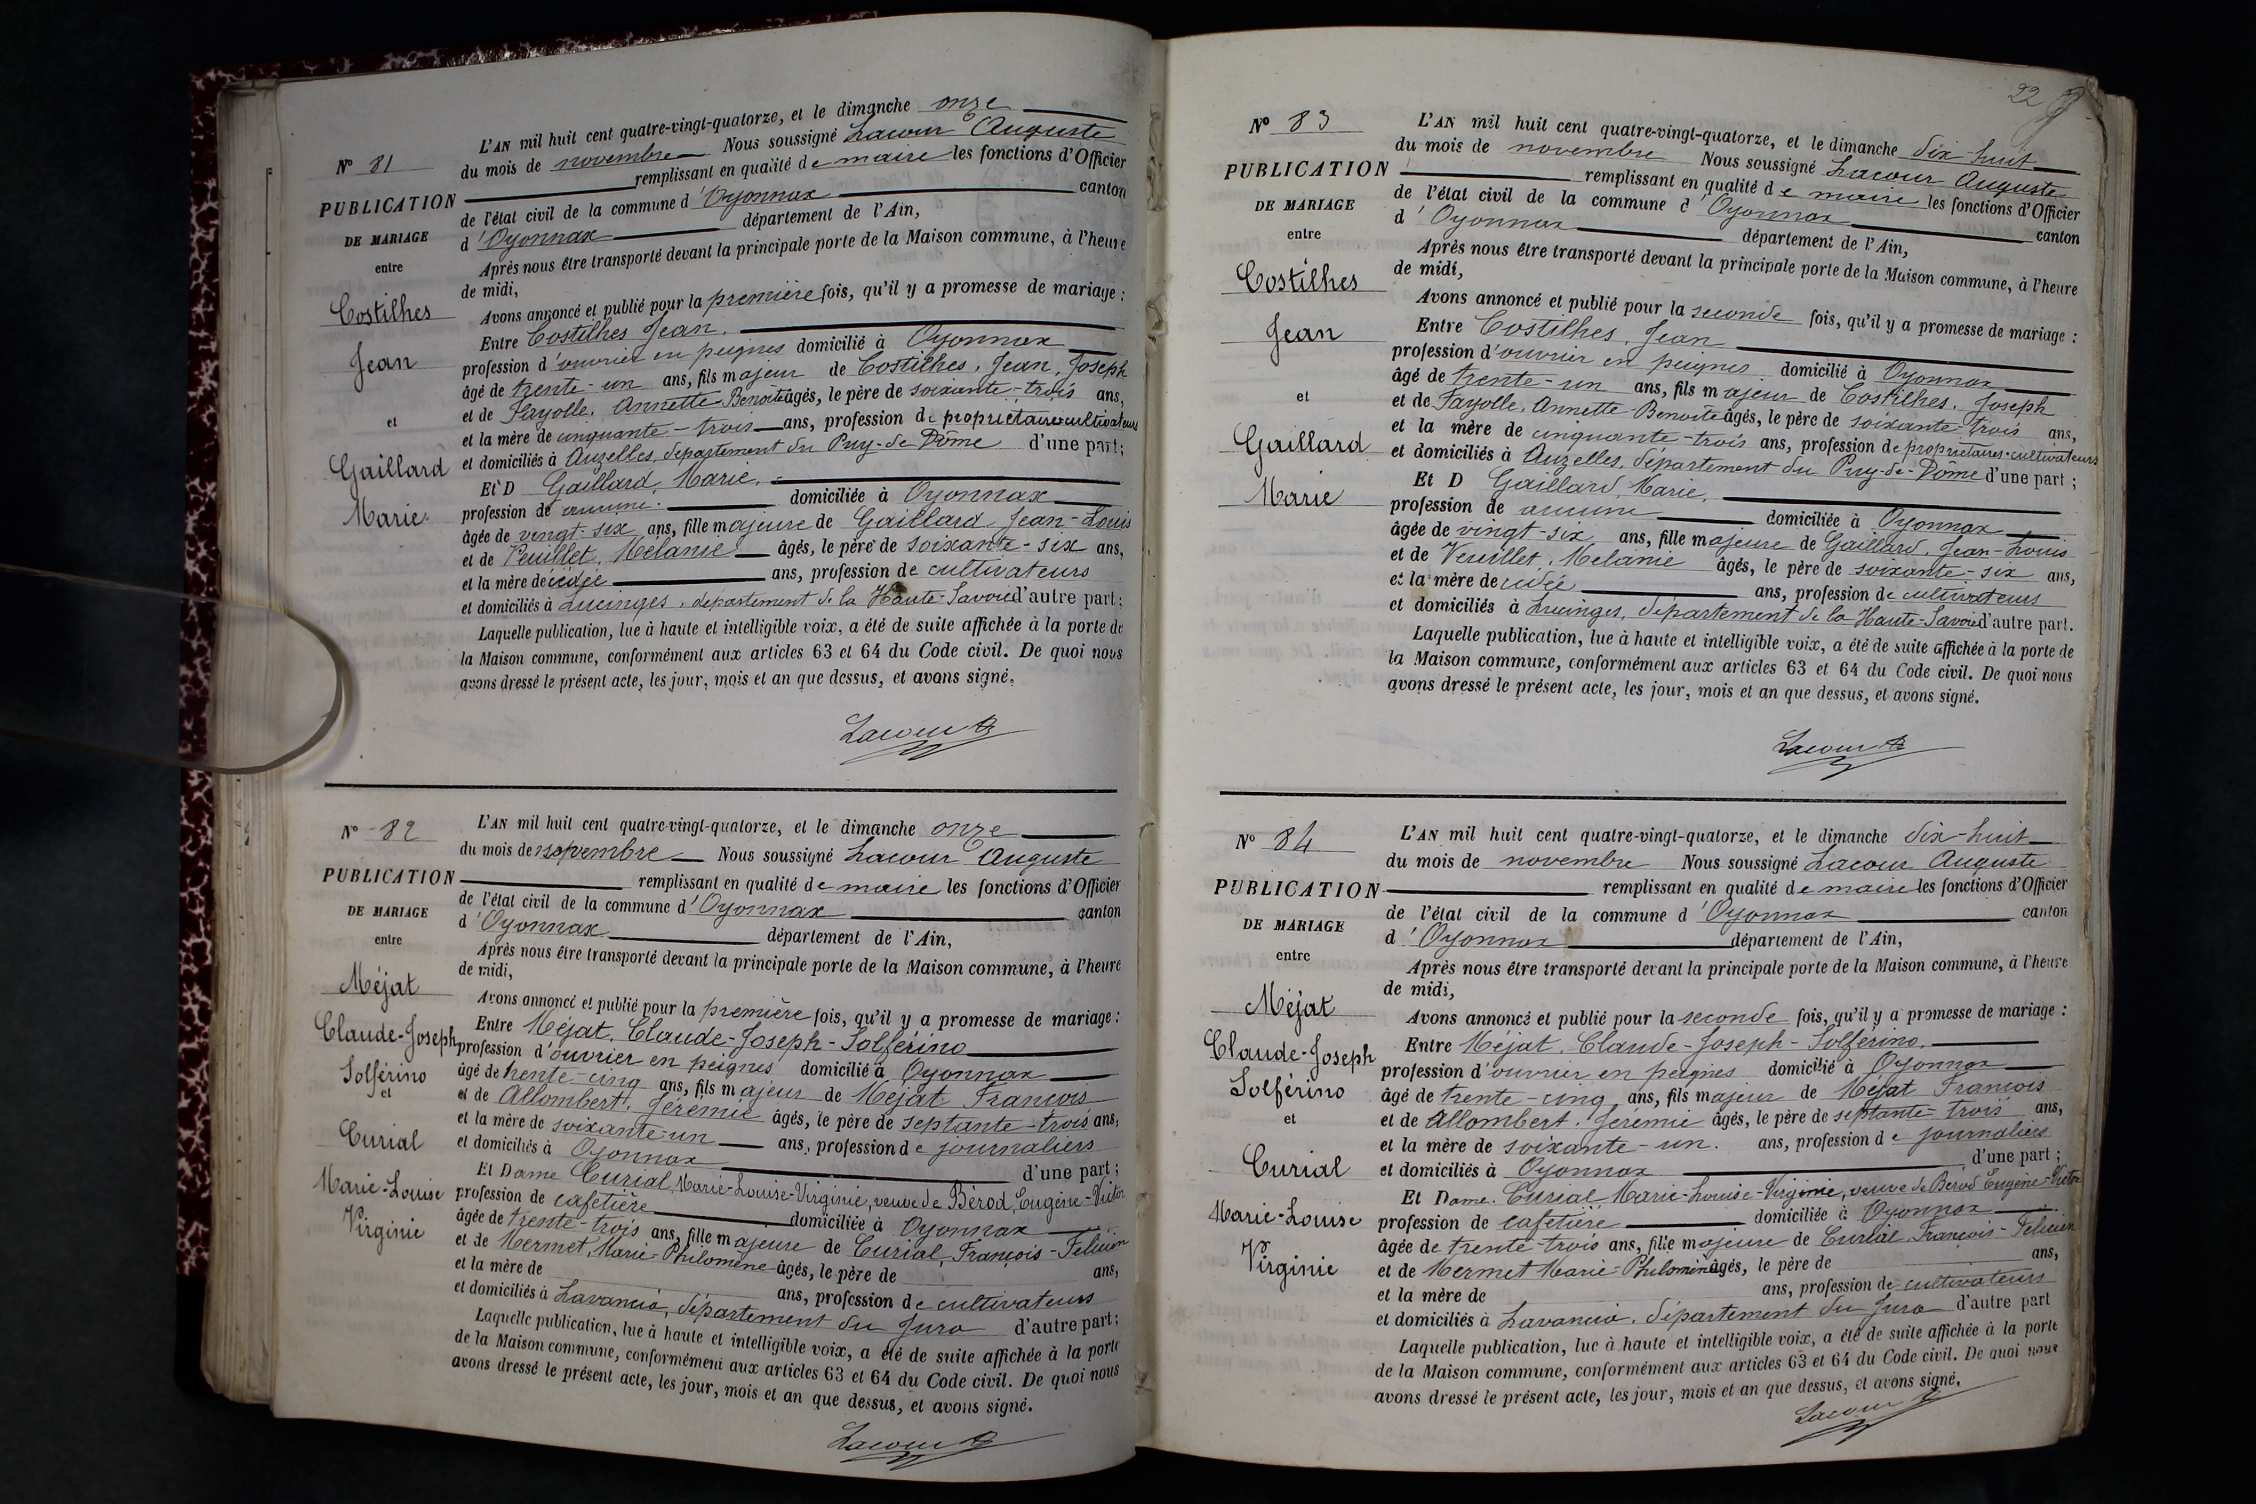 L'AN mil huit cent quatre-vingt-quatorze, et le dimanche onze
N° 81
du mois de novembre Nous soussigné Lacour Auguste
PUBLICATION
remplissant en qualité de maire les fonctions d'Officier
de l'état civil de la commune d'Oyonnax canton
DE MARIAGE
d'Oyonnax département de l'Ain,
entre
Après nous être transporté devant la principale porte de la Maison commune, à l'heure
de midi,
Costilhes
Avons annoncé et publié pour la première fois, qu'il y a promesse de mariage :
Entre Costilhes Jean.
Jean
profession d'ouvrier en peignes domicilié à Oyonnax
âgé de trente-un ans, fils majeur de Costilhes, Jean, Joseph
et
et de Fayolle, Annette Benoite âgés, le père de soixante-trois ans,
et la mère de cinquante-trois ans, profession de propriétaires cultivateurs
Gaillard
et domiciliés à Auzelles, département du Puy-de-Dôme d'une part;
Et D Gaillard, Marie,
Marie.
profession de aucune. domiciliée à Oyonnax
âgée de vingt-six ans, fille majeure de Gaillard, Jean-Louis
et de Veuillet, Mélanie âgés, le père de soixante-six ans,
et la mère décédée ans, profession de cultivateurs
et domiciliés à Lucinges, département de la Haute-Savoie d'autre part;
Laquelle publication, lue à haute et intelligible voix, a été de suite affichée à la porte de
la Maison commune, conformément aux articles 63 et 64 du Code civil. De quoi nous
avons dressé le présent acte, les jour, mois et an que dessus, et avons signé.
Lacour A
L'AN mil huit cent quatre-vingt-quatorze, et le dimanche onze
N° 82
du mois de novembre Nous soussigné Lacour Auguste
PUBLICATION
remplissant en qualité de maire les fonctions d'Officier
de l'état civil de la commune d'Oyonnax canton
DE MARIAGE
d'Oyonnax département de l'Ain,
entre
Après nous être transporté devant la principale porte de la Maison commune, à l'heure
de midi,
Méjat
Avons annoncé et publié pour la première fois, qu'il y a promesse de mariage :
Claude-Joseph
Entre Méjat, Claude-Joseph-Solférino
profession d'ouvrier en peignes domicilié à Oyonnax
Solférino
âgé de trente-cinq ans, fils majeur de Méjat François
et
et de Allombert, Jérémie âgés, le père de septante-trois ans,
et la mère de soixante-un ans, profession de journaliers
Curial
et domiciliés à Oyonnax d'une part;
Et Dame Curial, Marie-Louise-Virginie, veuve de Bérod, Eugène-Victor
Marie-Louise
profession de cafetière domiciliée à Oyonnax
Virginie
âgée de trente-trois ans, fille majeure de Curial, François-Félicien
et de Mermet, Marie-Philomène âgés, le père de ans,
et la mère de ans, profession de cultivateurs
et domiciliés à Lavancia, département du Jura d'autre part;
Laquelle publication, lue à haute et intelligible voix, a été de suite affichée à la porte
de la Maison commune, conformément aux articles 63 et 64 du Code civil. De quoi nous
avons dressé le présent acte, les jour, mois et an que dessus, et avons signé.
Lacour A
22
N° 83
L'AN mil huit cent quatre-vingt-quatorze, et le dimanche dix-huit
du mois de novembre Nous soussigné Lacour Auguste
PUBLICATION
remplissant en qualité de maire les fonctions d'Officier
DE MARIAGE
de l'état civil de la commune d'Oyonnax canton
entre
d'Oyonnax département de l'Ain,
Après nous être transporté devant la principale porte de la Maison commune, à l'heure
de midi,
Costilhes
Avons annoncé et publié pour la seconde fois, qu'il y a promesse de mariage :
Jean
Entre Costilhes, Jean
profession d'ouvrier en peignes domicilié à Oyonnax
âgé de trente-un ans, fils majeur de Costilhes, Joseph
et
et de Fayolle, Annette-Benoite âgés, le père de soixante-trois ans,
et la mère de cinquante-trois ans, profession de propriétaires-cultivateurs
Gaillard
et domiciliés à Auzelles, département du Puy-de-Dôme d'une part ;
Marie
Et D Gaillard, Marie,
profession de aucune domiciliée à Oyonnax
âgée de vingt-six ans, fille majeure de Gaillard, Jean-Louis
et de Veuillet, Mélanie âgés, le père de soixante-six ans,
et la mère décédée ans, profession de cultivateurs
et domiciliés à Lucinges, département de la Haute-Savoie d'autre part.
Laquelle publication, lue à haute et intelligible voix, a été de suite affichée à la porte de
la Maison commune, conformément aux articles 63 et 64 du Code civil. De quoi nous
avons dressé le présent acte, les jour, mois et an que dessus, et avons signé.
Lacour A
N° 84
L'AN mil huit cent quatre-vingt-quatorze, et le dimanche dix-huit
du mois de novembre Nous soussigné Lacour Auguste
PUBLICATION
remplissant en qualité de maire les fonctions d'Officier
de l'état civil de la commune d'Oyonnax canton
DE MARIAGE
d'Oyonnax département de l'Ain,
entre
Après nous être transporté devant la principale porte de la Maison commune, à l'heure
de midi,
Méjat
Avons annoncé et publié pour la seconde fois, qu'il y a promesse de mariage :
Claude-Joseph
Entre Méjat, Claude-Joseph-Solférino,
profession d'ouvrier en peignes domicilié à Oyonnax
Solférino
âgé de trente-cinq ans, fils majeur de Méjat François
et
et de Allombert, Jérémie âgés, le père de septante-trois ans,
et la mère de soixante-un. ans, profession de journaliers
Curial
et domiciliés à Oyonnax d'une part ;
Et Dame. Curial Marie-Louise-Virginie, veuve de Bérod Eugène-Victor
Marie-Louise
profession de cafetière domiciliée à Oyonnax
Virginie
âgée de trente-trois ans, fille majeure de Curial François-Félicien
et de Mermet Marie-Philomène âgés, le père de ans,
et la mère de ans, profession de cultivateurs
et domiciliés à Lavancia, département du Jura d'autre part
Laquelle publication, lue à haute et intelligible voix, a été de suite affichée à la porte
de la Maison commune, conformément aux articles 63 et 64 du Code civil. De quoi nous
avons dressé le présent acte, les jour, mois et an que dessus, et avons signé.
Lacour A